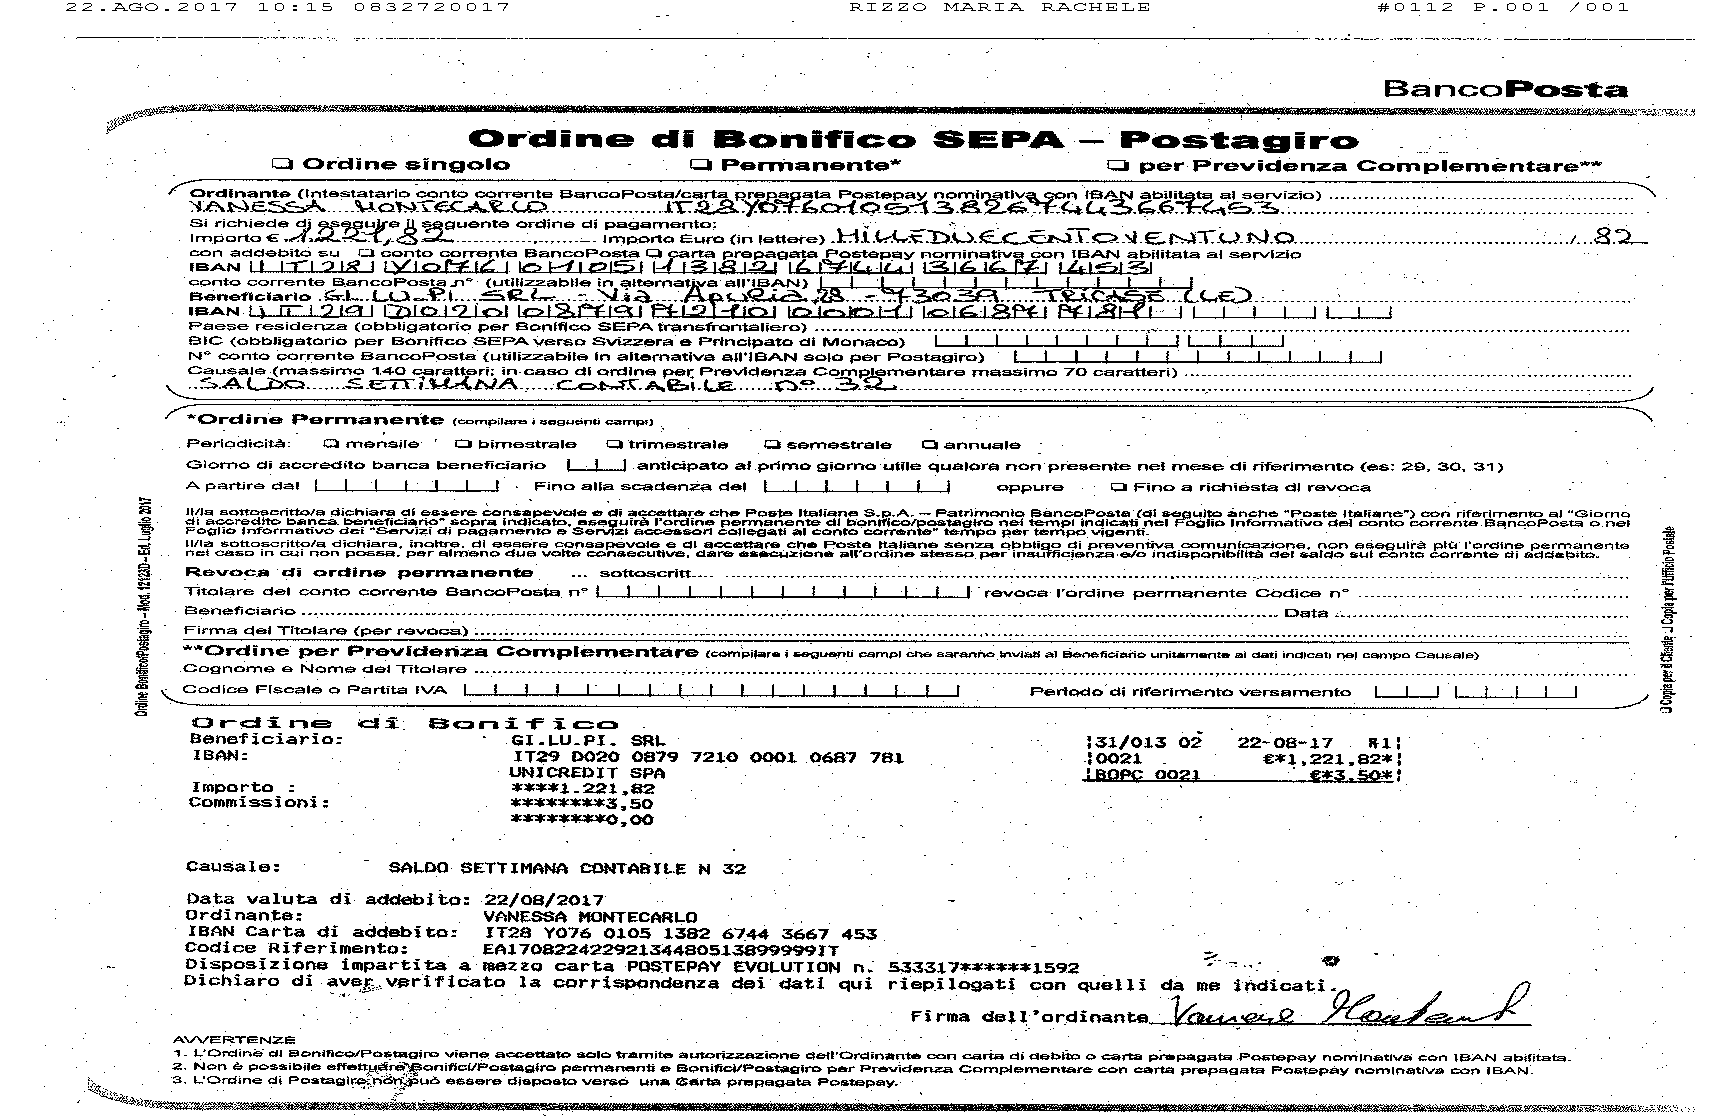 22.AGO.2017 10:15 0832720017 RIZZO MARIA RACHELE #0112 P.001 /001
BancoPosta
Ordine di Bonifico SEPA – Postagiro
❏ Ordine singolo ❏ Permanente* ❏ per Previdenza Complementare**
Ordinante (Intestatario conto corrente BancoPosta/carta prepagata Postepay nominativa con IBAN abilitata al servizio)
VANESSA MONTECARLO IT28Y0760105138267443667453
Si richiede di eseguire il seguente ordine di pagamento:
Importo € 1.221,82 Importo Euro (in lettere) MILLEDUECENTOVENTUNO , 82
con addebito su ❏ conto corrente BancoPosta ❏ carta prepagata Postepay nominativa con IBAN abilitata al servizio
IBAN IT28Y0760105138267443667453
conto corrente BancoPosta n° (utilizzabile in alternativa all'IBAN)
Beneficiario GI.LU.PI. SRL - Via Apulia, 28 - 73039 TRICASE (LE)
IBAN IT29D0200879721000010687781
Paese residenza (obbligatorio per Bonifico SEPA transfrontaliero)
BIC (obbligatorio per Bonifico SEPA verso Svizzera e Principato di Monaco)
N° conto corrente BancoPosta (utilizzabile in alternativa all'IBAN solo per Postagiro)
Causale (massimo 140 caratteri; in caso di ordine per Previdenza Complementare massimo 70 caratteri)
SALDO SETTIMANA CONTABILE N° 32
*Ordine Permanente (compilare i seguenti campi)
Periodicità: ❏ mensile ❏ bimestrale ❏ trimestrale ❏ semestrale ❏ annuale
Giorno di accredito banca beneficiario anticipato al primo giorno utile qualora non presente nel mese di riferimento (es: 29, 30, 31)
A partire dal Fino alla scadenza del oppure ❏ Fino a richiesta di revoca
Il/la sottoscritto/a dichiara di essere consapevole e di accettare che Poste Italiane S.p.A. – Patrimonio BancoPosta (di seguito anche "Poste Italiane") con riferimento al "Giorno
di accredito banca beneficiario" sopra indicato, eseguirà l'ordine permanente di bonifico/postagiro nei tempi indicati nel Foglio Informativo del conto corrente BancoPosta o nel
Foglio Informativo dei "Servizi di pagamento e Servizi accessori collegati al conto corrente" tempo per tempo vigenti.
Il/la sottoscritto/a dichiara, inoltre, di essere consapevole e di accettare che Poste Italiane senza obbligo di preventiva comunicazione, non eseguirà più l'ordine permanente
nel caso in cui non possa, per almeno due volte consecutive, dare esecuzione all'ordine stesso per insufficienza e/o indisponibilità del saldo sul conto corrente di addebito.
Revoca di ordine permanente ... sottoscritt
Titolare del conto corrente BancoPosta n° revoca l'ordine permanente Codice n°
Beneficiario Data
Firma del Titolare (per revoca)
**Ordine per Previdenza Complementare (compilare i seguenti campi che saranno inviati al Beneficiario unitamente ai dati indicati nel campo Causale)
Cognome e Nome del Titolare
Codice Fiscale o Partita IVA Periodo di riferimento versamento
Ordine Bonifico/Postagiro – Mod. 12123D – Ed. Luglio 2017
❏ Copia per il Cliente ❏ Copia per l'Ufficio Postale
Ordine di Bonifico
Beneficiario: GI.LU.PI. SRL
IBAN: IT29 D020 0879 7210 0001 0687 781
UNICREDIT SPA
Importo : ****1.221,82
Commissioni: ********3,50
********0,00
|31/013 02 22-08-17 R1|
|0021 €*1,221.82*|
|BOPC 0021 €*3.50*|
Causale: SALDO SETTIMANA CONTABILE N 32
Data valuta di addebito: 22/08/2017
Ordinante: VANESSA MONTECARLO
IBAN Carta di addebito: IT28 Y076 0105 1382 6744 3667 453
Codice Riferimento: EA17082242292134480513899999IT
Disposizione impartita a mezzo carta POSTEPAY EVOLUTION n. 533317******1592
Dichiaro di aver verificato la corrispondenza dei dati qui riepilogati con quelli da me indicati.
Firma dell'ordinante Vanessa Montecarlo
AVVERTENZE
1. L'Ordine di Bonifico/Postagiro viene accettato solo tramite autorizzazione dell'Ordinante con carta di debito o carta prepagata Postepay nominativa con IBAN abilitata.
2. Non è possibile effettuare Bonifici/Postagiro permanenti e Bonifici/Postagiro per Previdenza Complementare con carta prepagata Postepay nominativa con IBAN.
3. L'Ordine di Postagiro non può essere disposto verso una Carta prepagata Postepay.